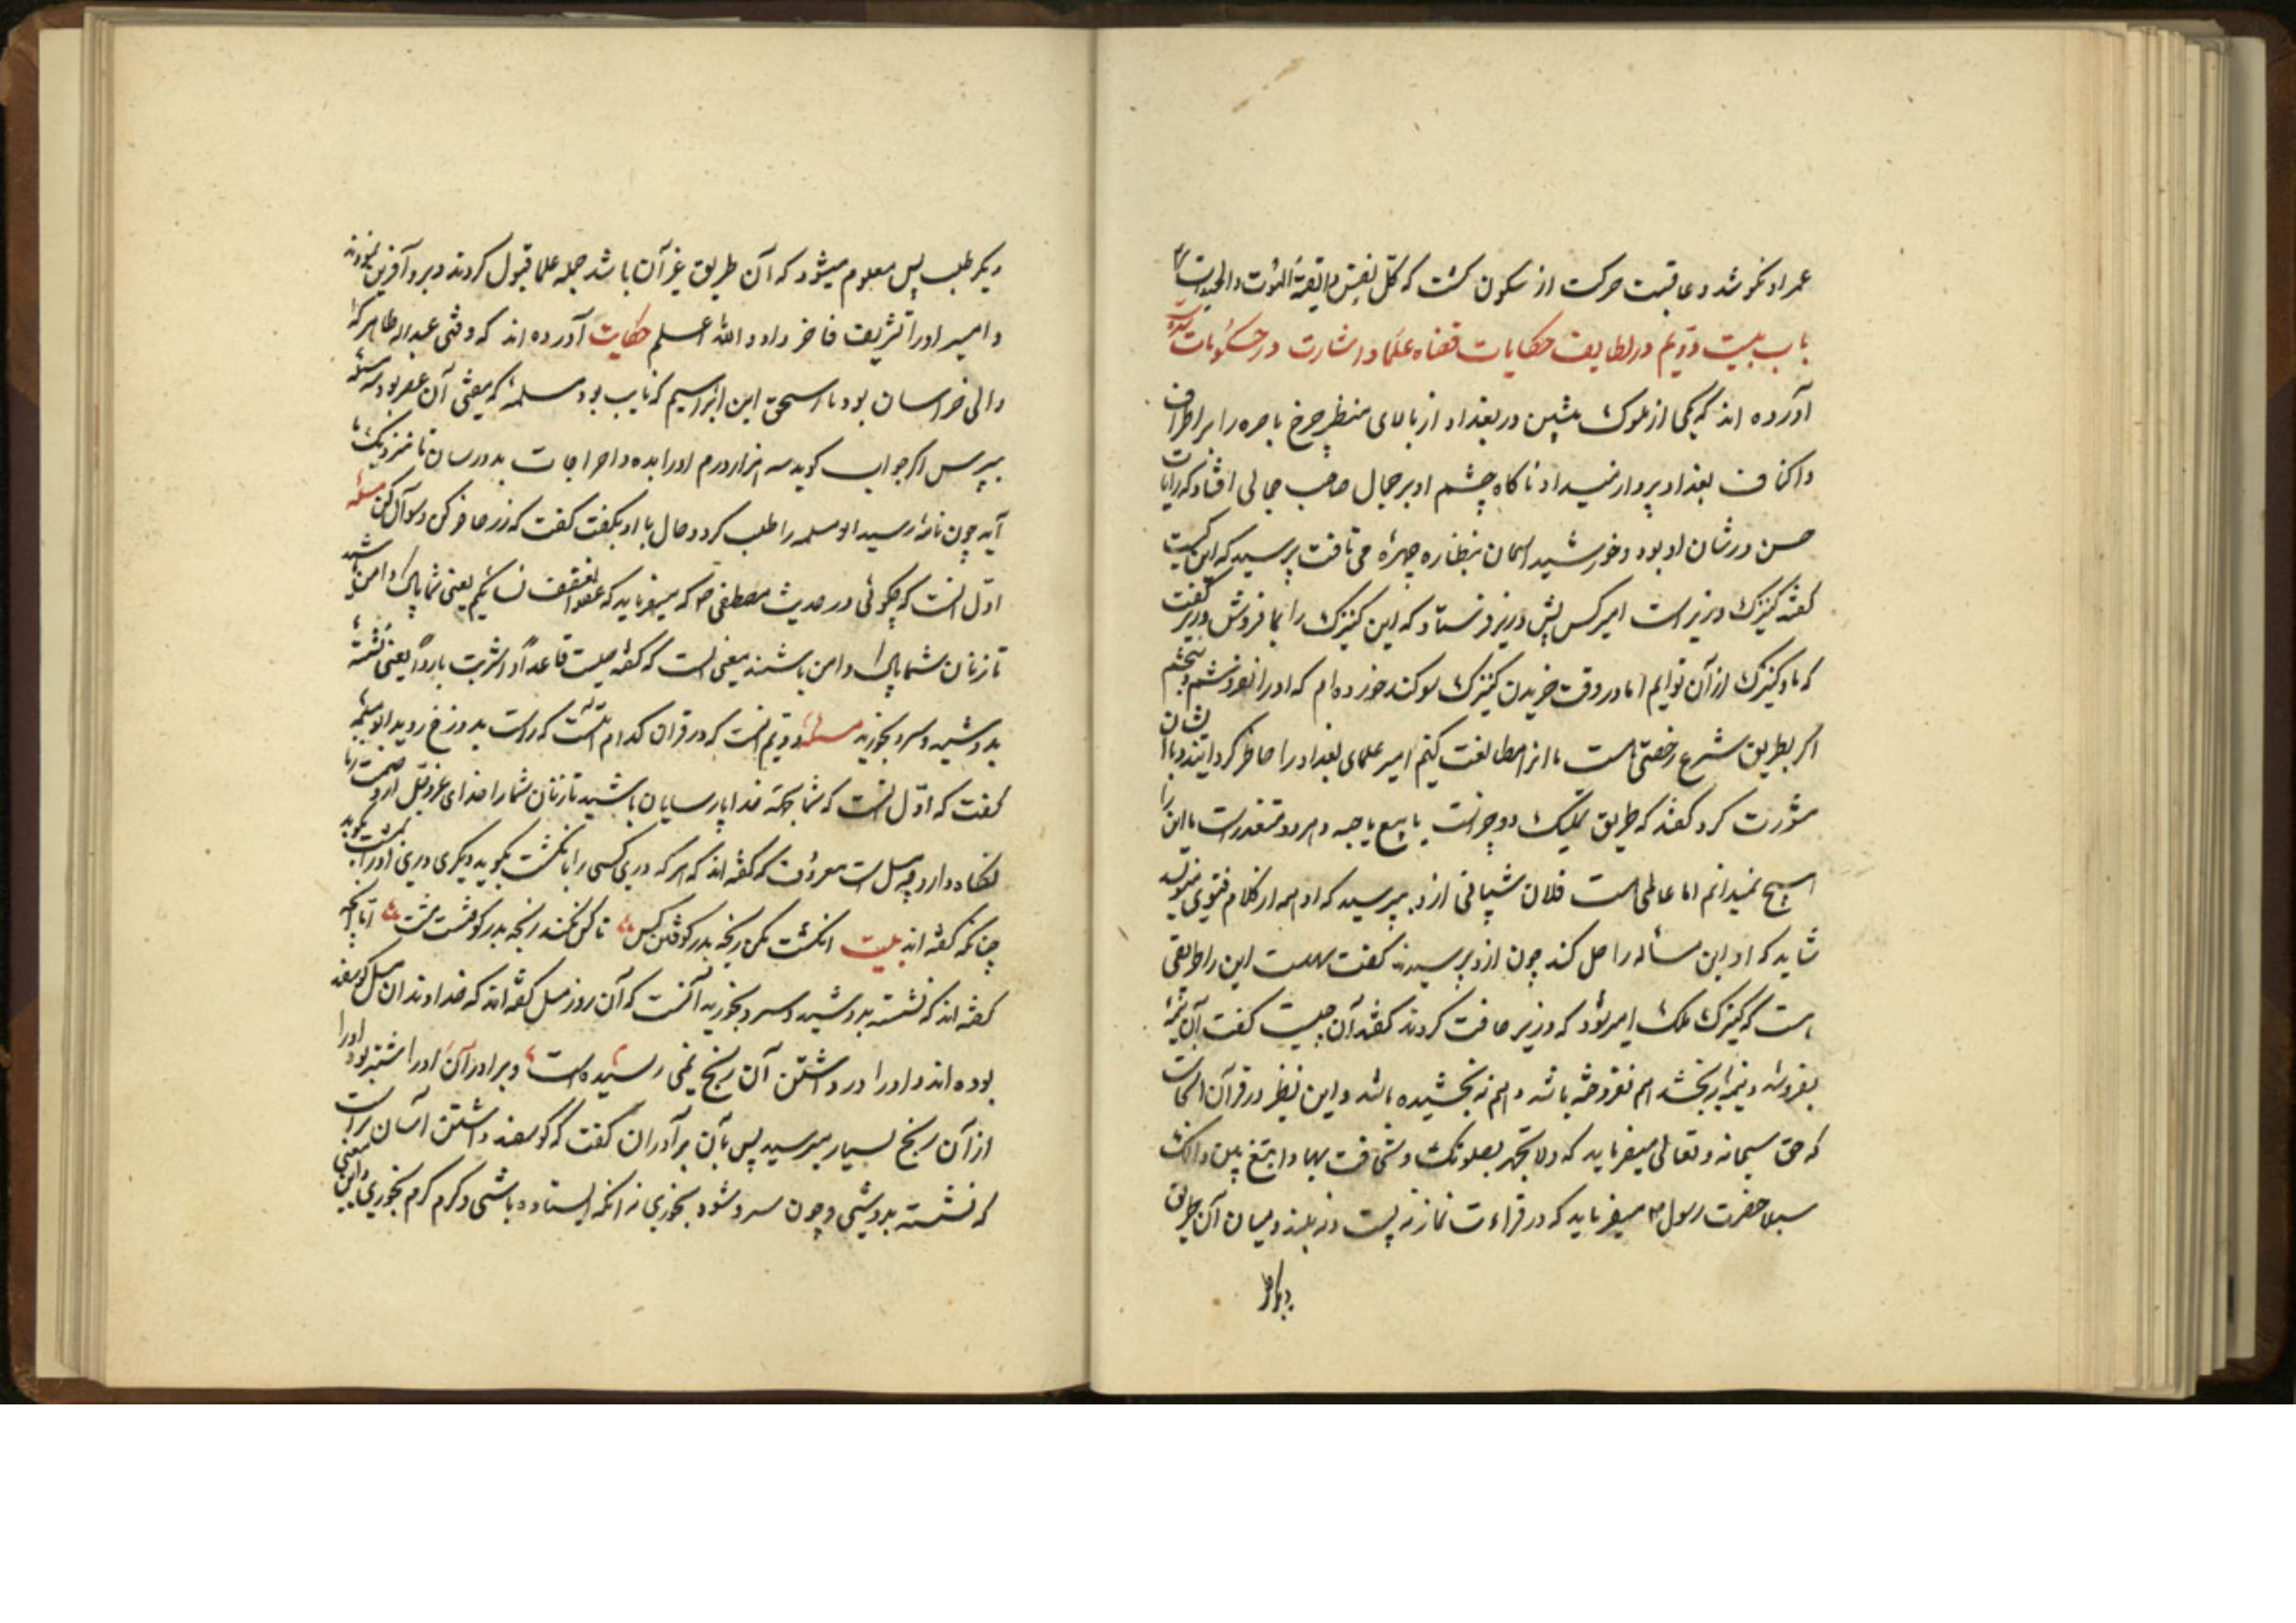 عمر او نکو شد و عاقبت حرکت از سکون گشت که کل نفس ذایقة الموت
باب بیست و دویم در لطایف حکایات قضاه علما و اشارت در
آورده اند که یکی از ملوک پیشین در بغداد از بالای منظر چرخ باصره را بر اطراف
و اکناف بغداد پرواز میداد ناکاه چشم او بر جمال صاحب جمالی افتاد که رایات
حسن در شان او بود و خورشید اسمان بنظاره چهرهٔ می تافت پرسید که این کیست
گفتند کنیزک وزیر است امیر کس پیش وزیر فرستاد که این کنیزک را بما فروش وزیر گفت
که ما و کنیزک از آن توایم اما در وقت خریدن کنیزک سوکند خورده ام که او را نفروشم و نبخشم
اکر بطریق شرع رخصتی هست ما نیز مطابقت کنیم امیر علمای بغداد را حاضر کردانیند و با ایشان
مشورت کرد گفتند که طریق تملیک دو چیز است یا بیع یا هبه و هر دو متعذر است ما این را
هیچ نمیدانیم اما عاملی هست فلان شیبانی ازو بپرسید که او هم از کلام فتوی مینویسد
شاید که او این مساله را حل کند چون ازو پرسیدند گفت سهلست این را طریقی
هست که کنیزک ملک امیر شود که وزیر حانث نکردد گفتند آن چیست گفت آن نیمهٔ
بفروشد و نیمهٔ ببخشد هم نفروخته باشد و هم نه بخشیده باشد و این نظیر در قرآن
که حق سبحانه و تعالی میفرماید که ولا تجهر بصلوتک ولا تخافت بها وابتغ بین ذالک
سبیلا حضرت رسول میفرماید که در قراءت نماز نه پست و نه بلند و میان آن طریق
دیکر طلب
دیکر طلب پس معلوم میشود که آن طریق غیر آن باشد جمله علما قبول کردند و برو آفرین نمودند
و امیر او را تشریف فاخر داد والله اعلم حکایت آورده اند که وقتی عبدالله طاهر که
والی خراسان بود با اسحق ابن ابراهیم که نایب بود مسلمه که مفتی آن عصر بود سه مسئله
بپرس اکر جواب کوید سه هزار درم او را بده و اخراجات بدو رسان تا نزدیک ما
آید چون نامه رسید ابو مسلمه را طلب کرد و حال با او بگفت گفت که زر حاضر کن و سوآل کن مسئله
اول انست که چکوئی در حدیث مصطفی ص که میفرماید که عفوا تعفف نسائکم یعنی شما پاک دامن باشید
تا زنان شما پاک دامن باشند معنی انست که گفته قاعدا و اشربت باردا یعنی نشسته
بدوشید و سرد بخورید مسئله دویم انست که در قران کدام است که راست بدوزخ روید ابو مسلمه
کفت که اول انست که شما بجهة خدا پارسایان باشید تا زنان شما را خدای عز و جل از
نکاه دارد و مثل است معروف که گفته اند که هر که در کسی را بانکشت بکوبد دیکری در او را بمشت بکوبد
چنانکه گفته اند بیت انکشت مکن رنجه بدر کوفتن کس تا کس نکند رنجه بدر کوفتنت مشت اما آنچه
گفته اند که نشسته بدوشید و سرد بخورید آنست که آن روز مثل گفته اند که خداوندان میل کوسفند
بوده اند و او را در داشتن آن رنج نمی رسیده است و برادر آن او را شتر بود او را
از آن رنج بسیار میرسید پس بآن برادران گفت که کوسفند داشتن آسان تر است
که نشسته بدوشی و چون سرد شود بخوری نه انکه ایستاده باشی و کرم کرم بخوری و این معنی